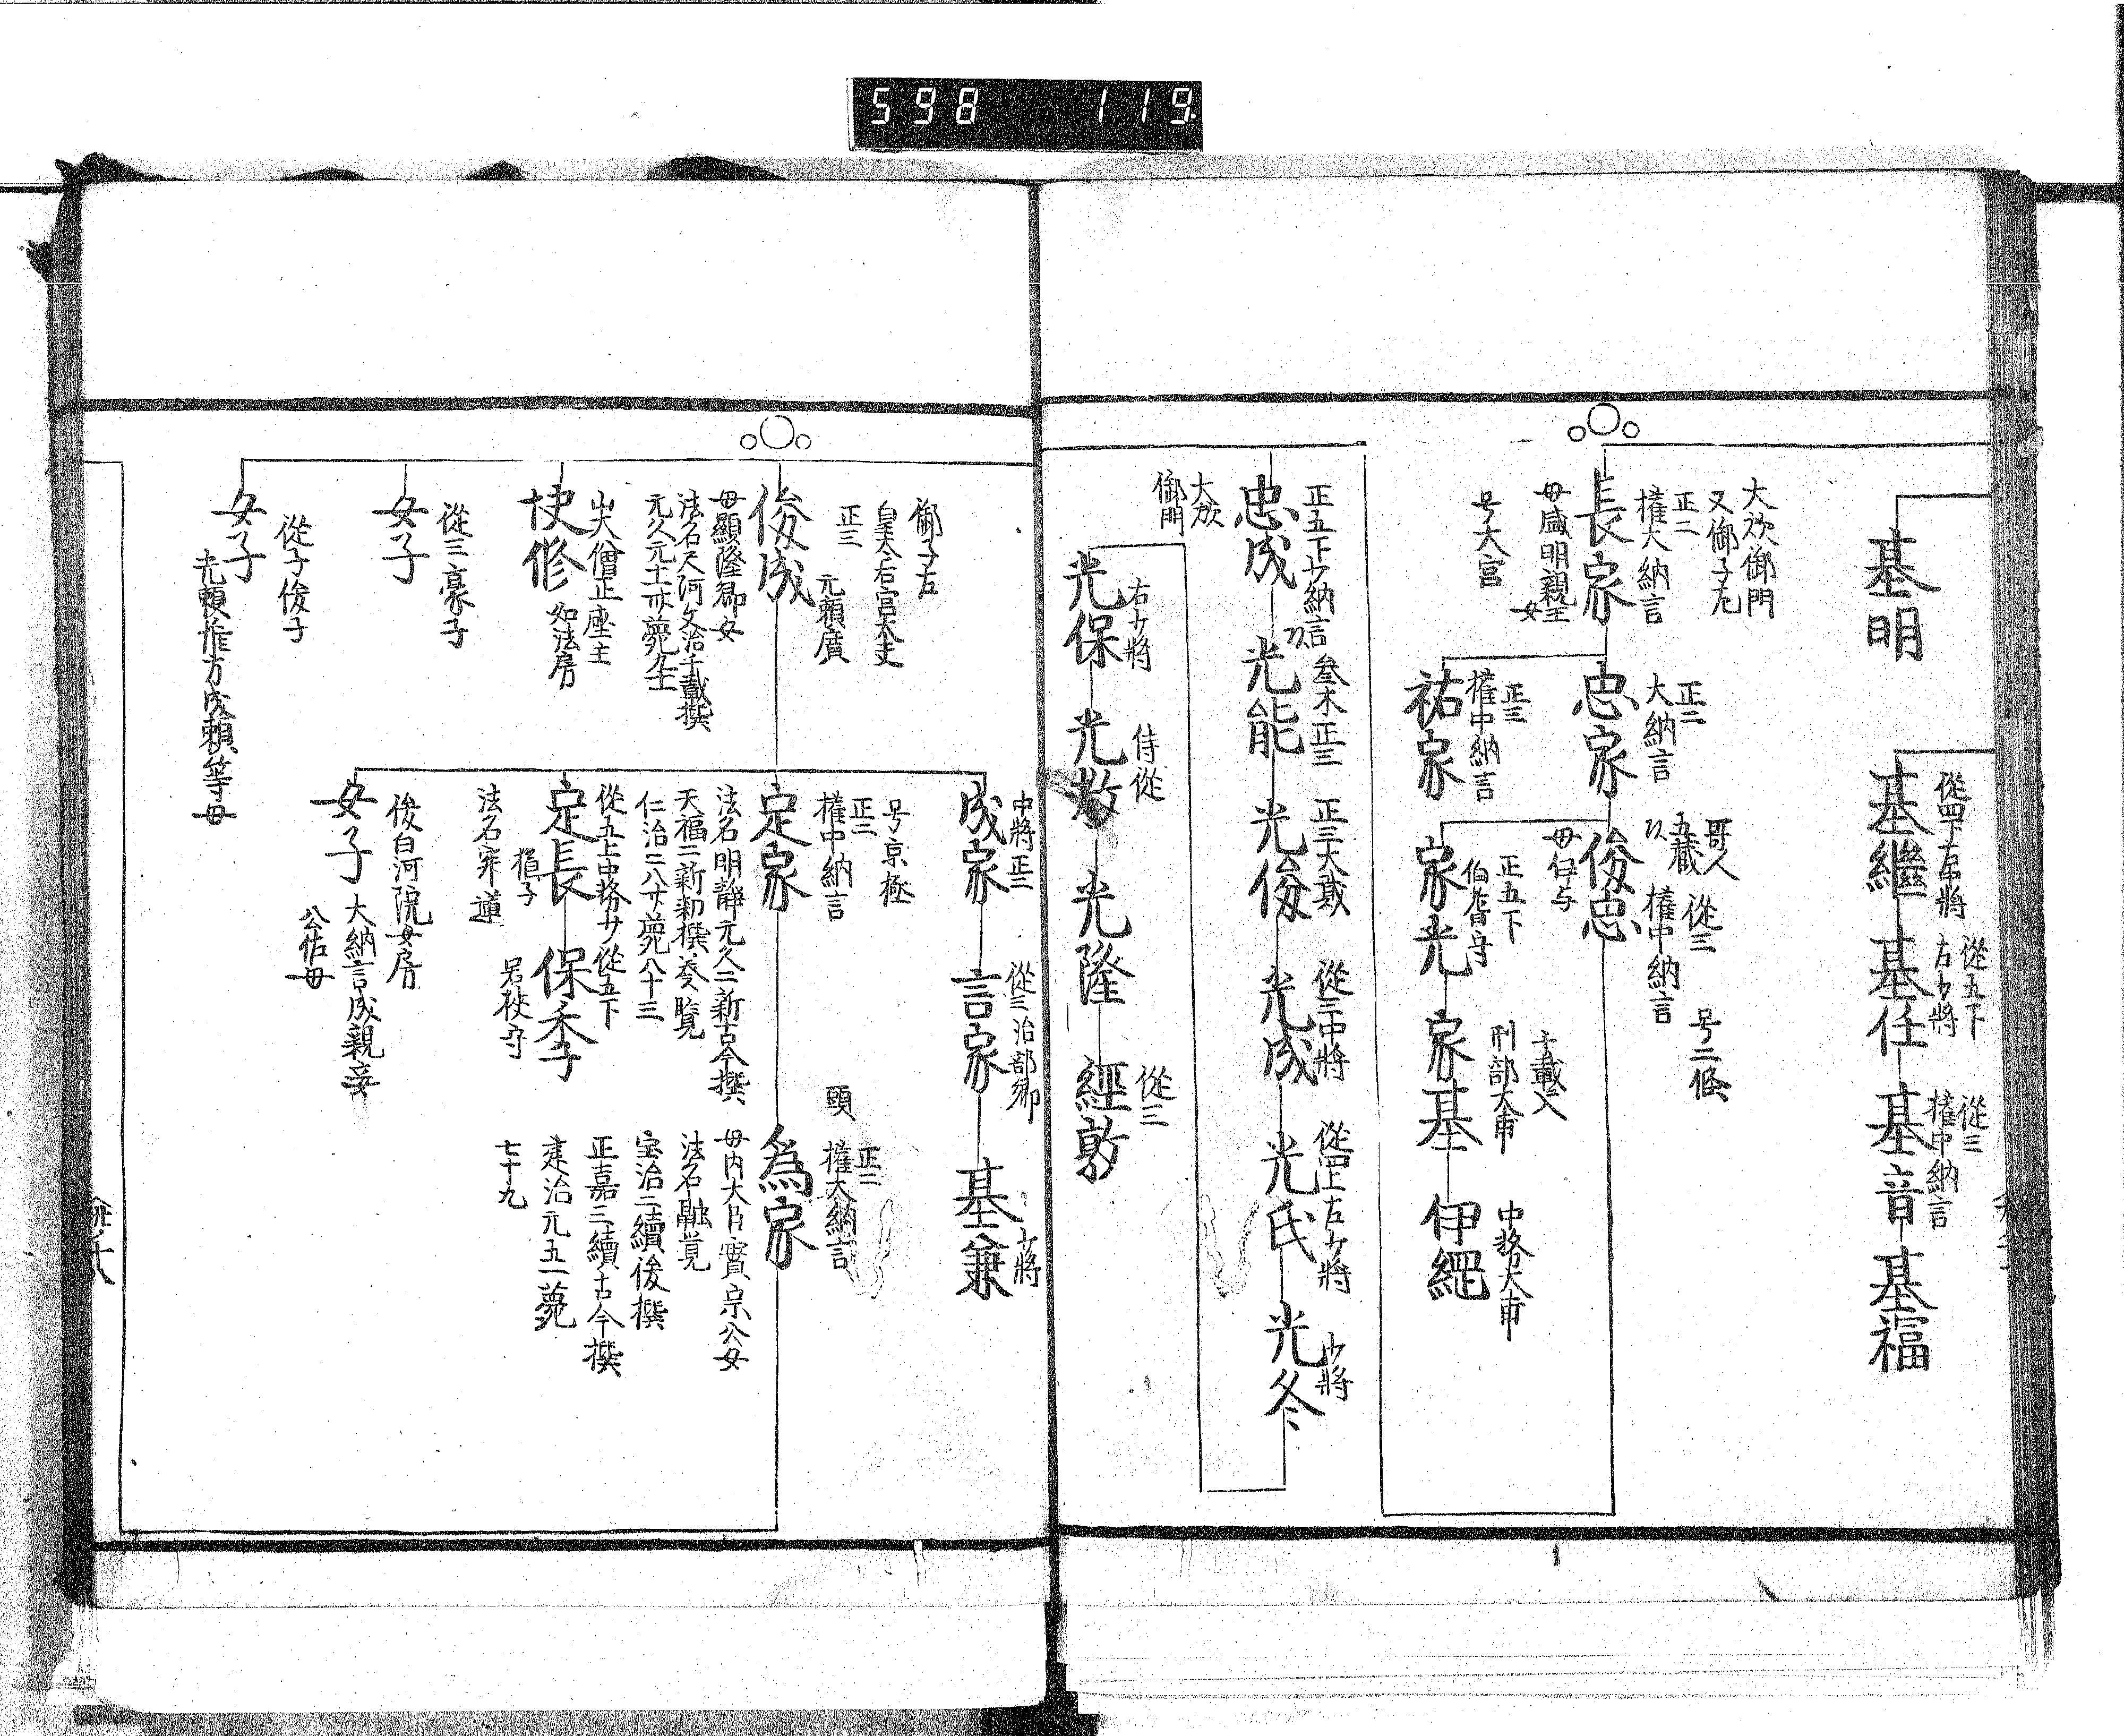 598 119
基明
從四下右中將
基繼
從五下
右少將
基任
從三
權中納言
基音
基福
大炊御門
又御子左
正二
權大納言
長家
母盛明親王女
号大宮
正二
大納言
忠家
正三
權中納言
祐家
哥人
五藏
從三
權中納言
号二條
俊忠
母伊与
正五下
伯耆守
家光
千載人
刑部大甫
家基
中務大甫
伊繩
正五下少納言
忠成
叁木正三
光能
正三大貳
光俊
從三中將
光成
從四上右少將
光氏
少將
光冬
大炊
御門
右少將
光保
侍從
光教
光隆
從三
經敦
御子左
皇太后宮大夫
正三
元顯廣
俊成
母顯隆卿女
法名尺阿文治千載撰
元久元十一廿薨九十一
中將正三
成家
從三治部卿
言家
少將
基兼
号京極
正二
權中納言
定家
法名明靜元久二新古今撰
天福二新勅撰奏覽
仁治二八廿薨八十三
頭
正二
權大納言
為家
母内大臣實宗公女
法名融覚
宝治二續後撰
正嘉三續古今撰
建治元五一薨
七十九
山大僧正座主
快修
如法房
從五上中務少
定長
猶子
法名寂蓮
從五下
保季
若狹守
從三豪子
女子
後白河院女房
女子
大納言成親妾
公佑母
從子俊子
女子
光賴惟方成賴等母